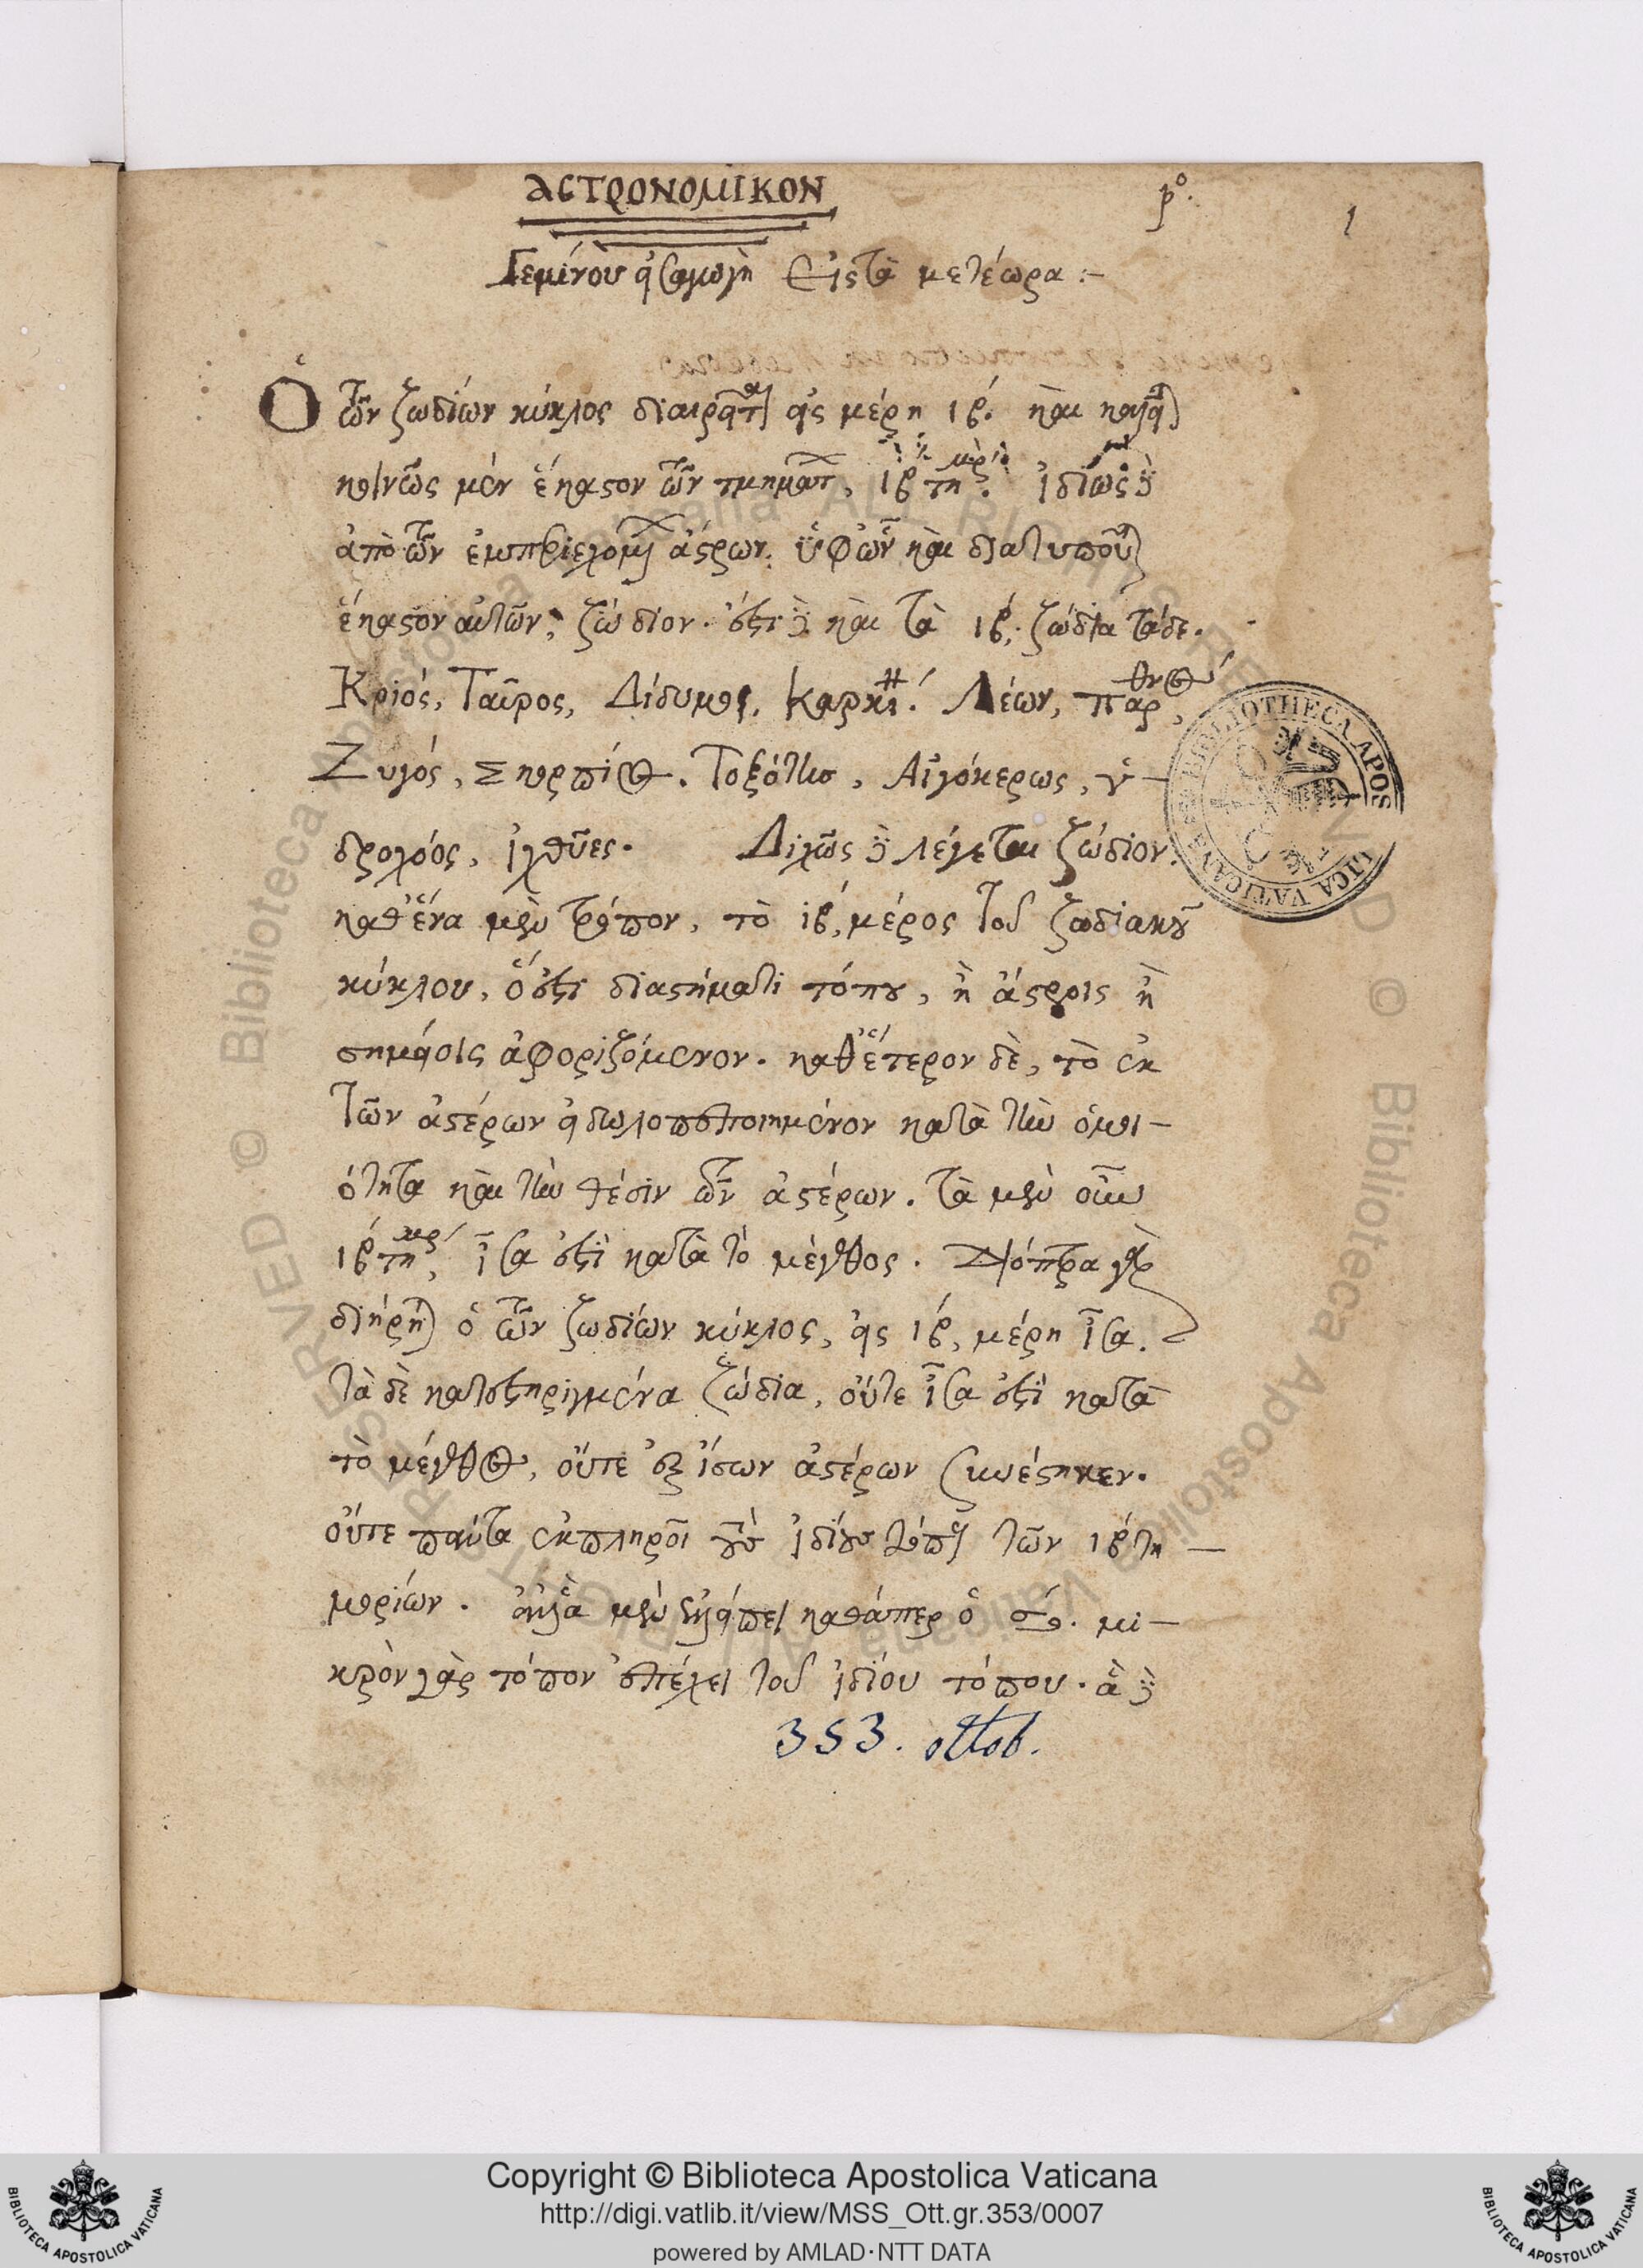 ἀστρονομικὸν
pº.
1
Γεμίνου εἰσαγωγὴ εἰς τὰ μετέωρα :–
Ὁ τῶν ζωδίων κύκλος διαιρεῖται εἰς μέρη ιβ. καὶ καλεῖται
κοινῶς μὲν ἕκαστον τῶν τμημάτων, ιβτημόριον. ἰδίως δὲ
ἀπὸ τῶν ἐμπεριεχομένων ἄστρων. ὑφ' ὧν καὶ διατυποῦται
ἕκαστον αὐτῶν, ζώδιον. ἐστὶ δὲ καὶ τὰ ιβ. ζώδια τάδε.
Κριός, Ταῦρος, Δίδυμοι, Καρκίνος. Λέων, παρθένος,
Ζυγός, Σκορπίος. Τοξότης, Αἰγόκερως, ὑ–
δροχόος, ἰχθύες. Διχῶς δὲ λέγεται ζώδιον.
καθ' ἕνα μὲν τρόπον, τὸ ιβ, μέρος τοῦ ζωδιακοῦ
κύκλου, ὅ ἐστι διαστήματι τόπου, ἢ ἄστροις ἢ
σημείοις ἀφοριζόμενον. καθ' ἕτερον δὲ, τὸ ἐκ
τῶν ἀστέρων εἰδωλοπεποιημένον κατὰ τὴν ὁμοι–
ότητα καὶ τὴν θέσιν τῶν ἀστέρων. τὰ μὲν οὖν
ιβτημόρια, ἴσα ἐστὶ κατὰ τὸ μέγεθος. Διόπτρα γὰρ
διῄρηται ὁ τῶν ζωδίων κύκλος, εἰς ιβ, μέρη ἴσα.
τὰ δὲ κατεστηριγμένα ζώδια, οὔτε ἴσα ἐστὶ κατὰ
τὸ μέγεθος, οὔτε ἐξ ἴσων ἀστέρων συνέστηκεν.
οὔτε πάντα ἐκπληροῖ τοὺς ἰδίους τόπους τῶν ιβτη–
μορίων. ἀλλὰ μὲν ἐλλείπει καθάπερ ὁ. μι–
κρὸν γὰρ τόπον ἐπέχει τοῦ ἰδίου τόπου. ἃ δὲ
353. ottob.
BIBLIOTHECA APOSTOLICA VATICANA
Copyright © Biblioteca Apostolica Vaticana
http://digi.vatlib.it/view/MSS_Ott.gr.353/0007
powered by AMLAD·NTT DATA
BIBLIOTECA APOSTOLICA VATICANA
BIBLIOTECA APOSTOLICA VATICANA